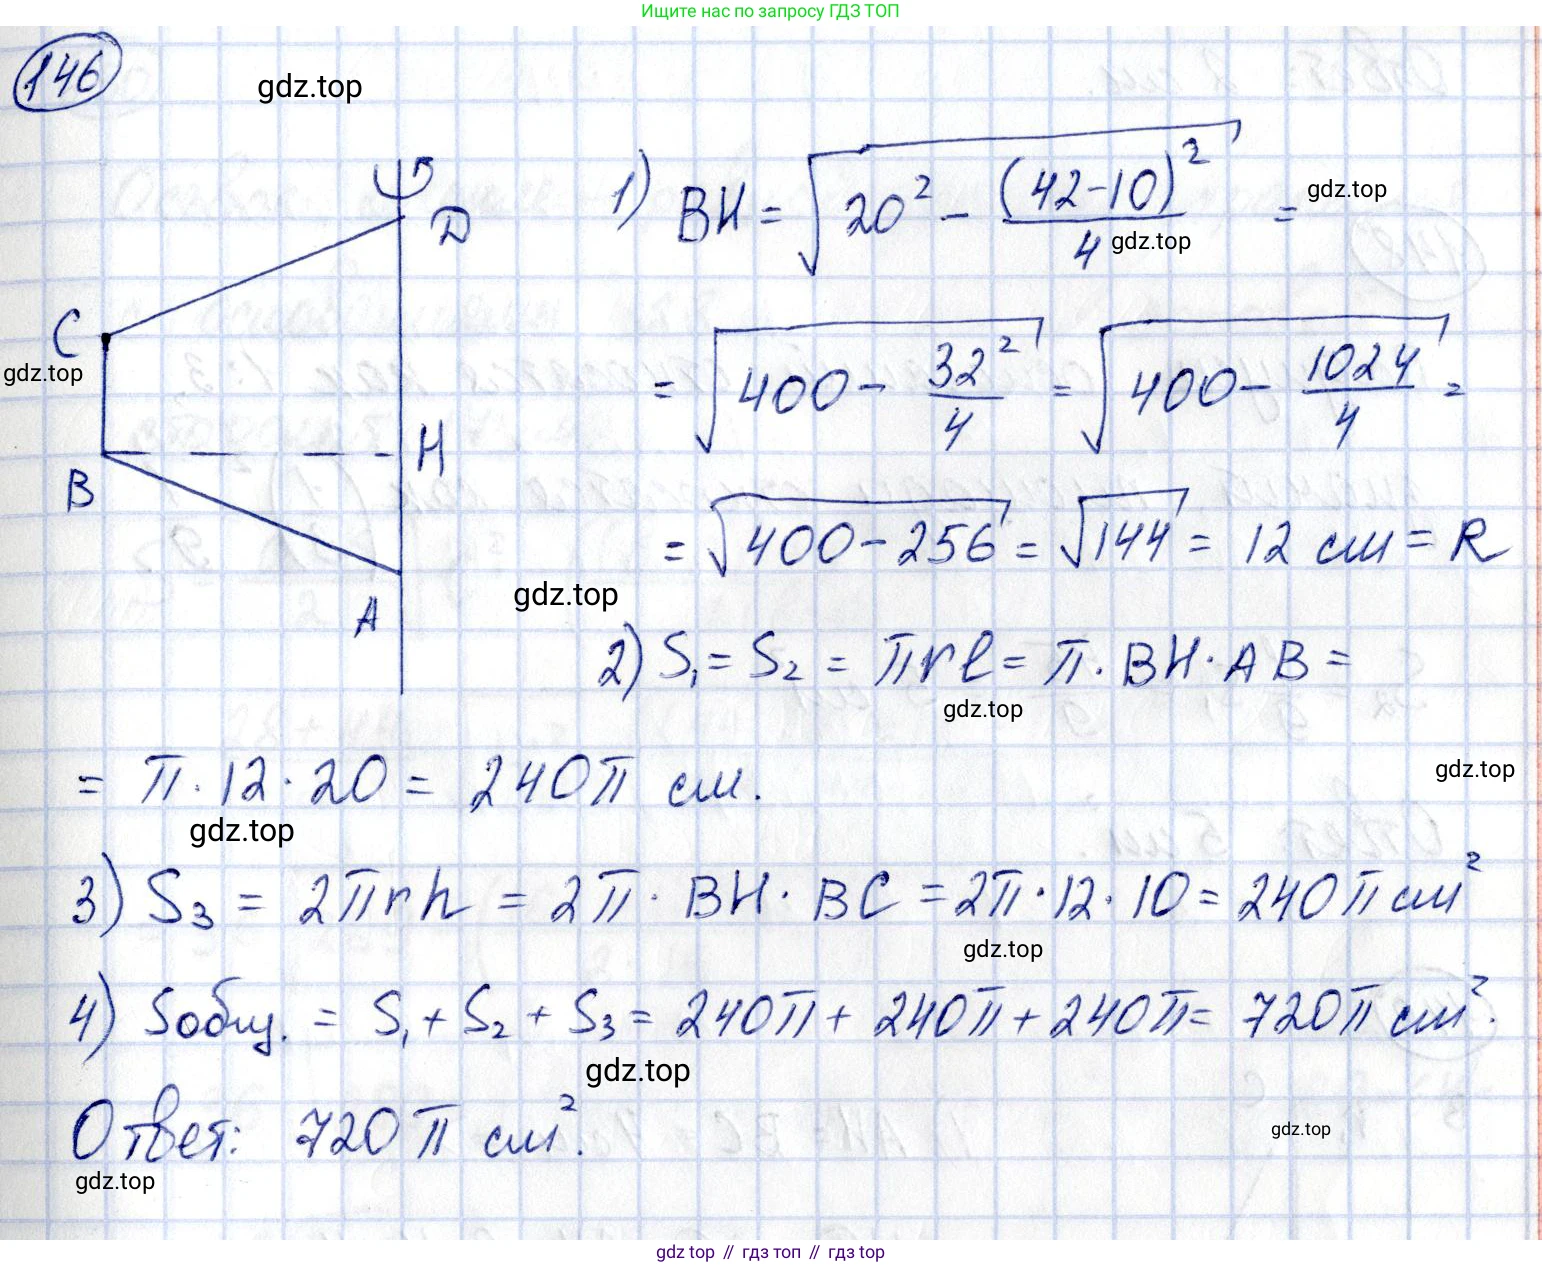 Ищите нас по запросу ГДЗ ТОП
146
gdz.top
D
1) BH = √(20² - (42-10)²/4) =
gdz.top
gdz.top
C
gdz.top
= √(400 - 32²/4) = √(400 - 1024/4) =
H
B
= √(400-256) = √144 = 12 см = R
gdz.top
A
2) S₁ = S₂ = πrl = π · BH · AB =
gdz.top
= π · 12 · 20 = 240π см.
gdz.top
gdz.top
3) S₃ = 2πrh = 2π · BH · BC = 2π · 12 · 10 = 240π см²
gdz.top
4) Sобщ. = S₁ + S₂ + S₃ = 240π + 240π + 240π = 720π см².
gdz.top
Ответ: 720π см².
gdz.top
gdz.top
gdz top // гдз топ // gdz top